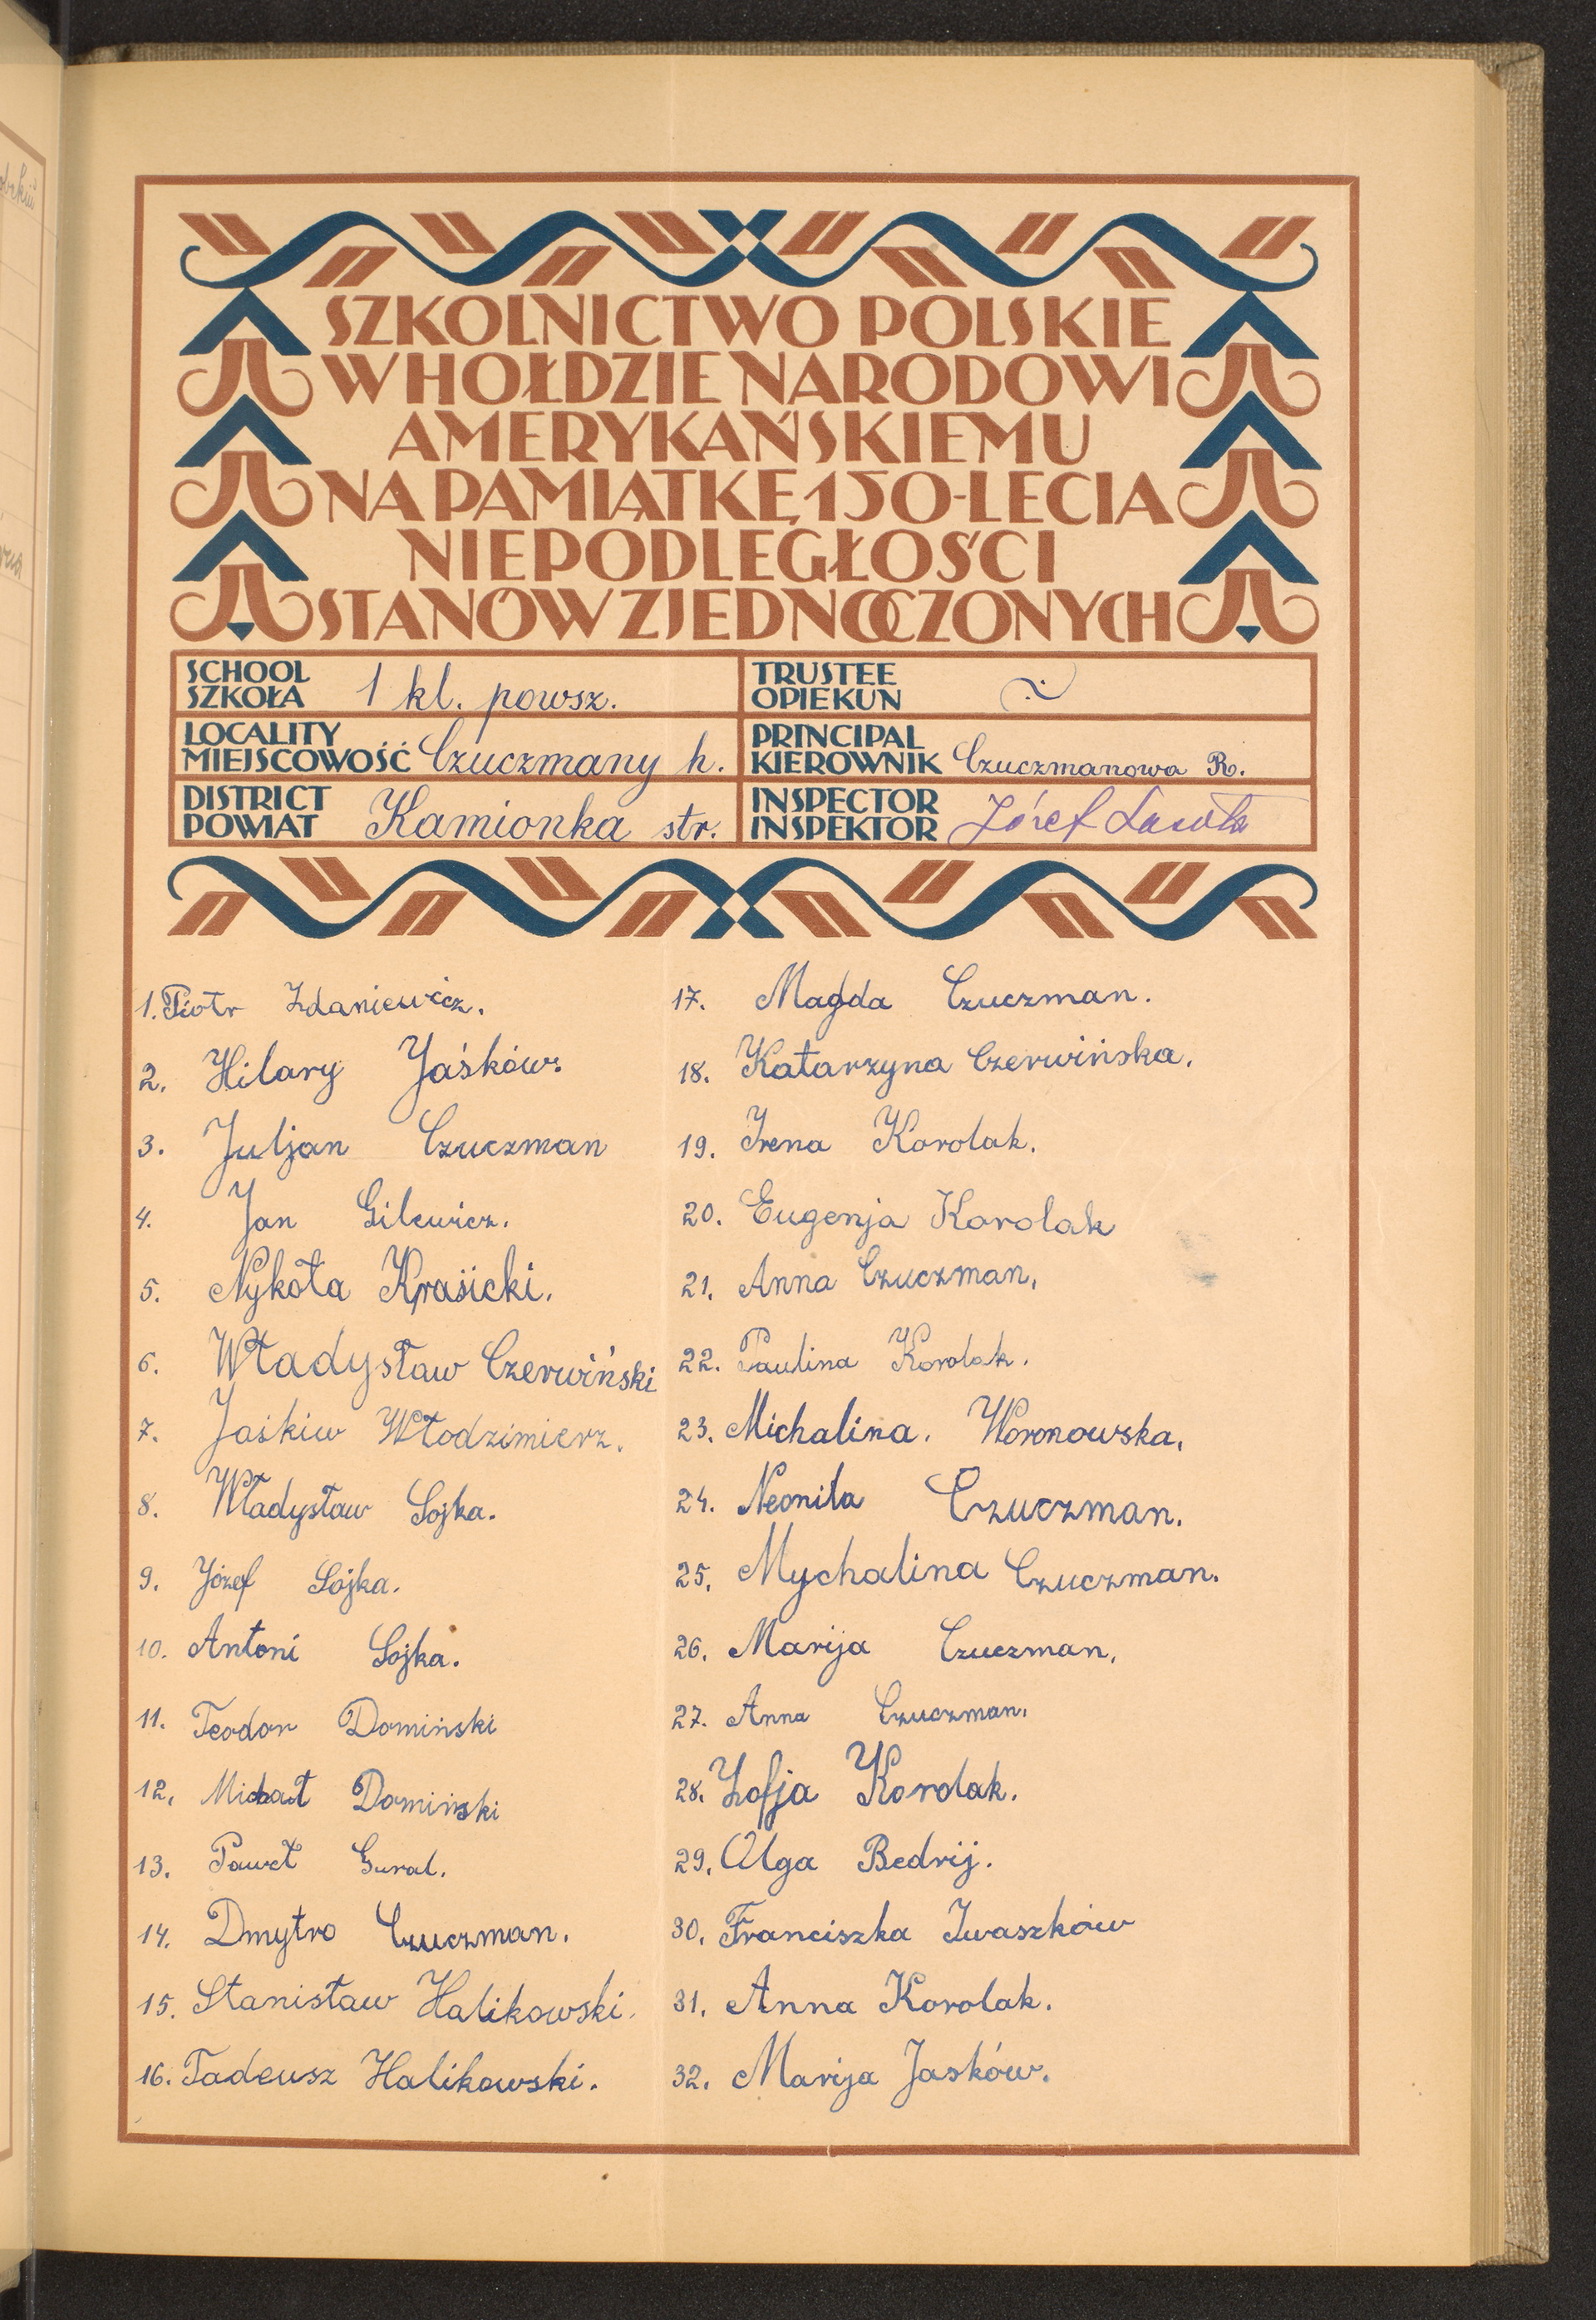 SZKOLNICTWO POLSKIE
W HOŁDZIE NARODOWI
AMERYKAŃSKIEMU
NA PAMIĄTKĘ 150-LECIA
NIEPODLEGŁOŚCI
STANÓW ZJEDNOCZONYCH
SCHOOL
SZKOŁA 1 kl. powsz.
TRUSTEE
OPIEKUN
LOCALITY
MIEJSCOWOŚĆ Czuczmany h.
PRINCIPAL
KIEROWNIK Czuczmanowa R.
DISTRICT
POWIAT Kamionka str.
INSPECTOR
INSPEKTOR Józef
1. Piotr Zdaniewicz.
2. Hilary Jaśków.
3. Juljan Czuczman
4. Jan Gilewicz.
5. Nykoła Krasicki.
6. Władysław Czerwiński
7. Jaśkiw Włodzimierz.
8. Władysław Sojka.
9. Józef Sojka.
10. Antoni Sojka.
11. Teodor Domiński
12. Michał Domiński
13. Paweł Gural.
14. Dmytro Czuczman.
15. Stanisław Halikowski.
16. Tadeusz Halikowski.
17. Magda Czuczman.
18. Katarzyna Czerwińska.
19. Irena Korolak.
20. Eugenja Korolak
21. Anna Czuczman.
22. Paulina Korolak.
23. Michalina. Woronowska.
24. Neonila Czuczman.
25. Mychalina Czuczman.
26. Marija Czuczman.
27. Anna Czuczman.
28. Zofja Korolak.
29. Olga Bedrij.
30. Franciszka Iwaszków
31. Anna Korolak.
32. Marija Jasków.